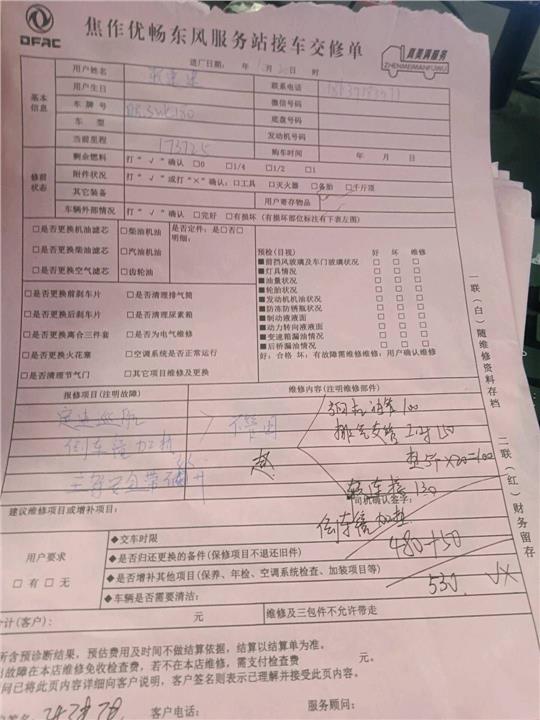 DFAC
焦作优畅东风服务站接车交修单
真美满服务
ZHENMEIMANFUWU
送厂日期: 年 月 日 时
基本信息
用户姓名 联系电话
用户生日 微信号码
车牌号 底盘号码
车型 发动机号码
当前里程 173725 购车时间 年 月 日
修前状态
剩余燃料 打"√"确认 □0 □1/4 □1/2 □1
附件状况 打"√"或打"×"确认: □工具 □灭火器 □备胎 □千斤顶
其它装备 用户寄存物品
车辆外部情况 打"√"确认 □完好 □有损坏(有损坏部位标注有下表左图)
□是否更换机油滤芯 □柴油机油 是否定件: 是□否□
明细:
□是否更换柴油滤芯 □汽油机油
□是否更换空气滤芯 □齿轮油
□是否更换前刹车片 □是否清理排气筒
□是否更换后刹车片 □是否清理尿素箱
□是否更换离合三件套 □是否为电气维修
□是否更换火花塞 □空调系统是否正常运行
□是否清理节气门 □其它项目维修及更换
预检(目视) 好 坏 维修
■前挡风玻璃及车门玻璃状况 □ □ □
■灯具情况 □ □ □
■油量状况 □ □ □
■轮胎状况 □ □ □
■发动机机油状况 □ □ □
■防冻防锈瓶状况 □ □ □
■制动液液面 □ □ □
■动力转向液液面 □ □ □
■变速箱漏油情况 □ □ □
■后桥漏油情况 □ □ □
好: 合格 坏: 有故障需维修维修: 用户确认维修
报修项目(注明故障) 维修内容(注明维修部件)
定速巡航
倒车镜加热
不管用
三字安全带
100
排气支管工时150
垫5个×20=100
赵
130
司机确认签字:
倒车镜加热
480+50
530
建议维修项目或增补项目:
用户要求
□有 □无
◆交车时限
◆是否归还更换的备件(保修项目不退还旧件)
◆是否增补其他项目(保养、年检、空调系统检查、加装项目等)
◆车辆是否需要清洁:
合计(客户): 元 维修及三包件不允许带走
所含预诊断结果, 预估费用及时间不做结算依据, 结算以结算单为准。
出故障在本店维修免收检查费, 若不在本店维修, 需支付检查费 元。
问已将此页内容详细向客户说明, 客户签名则表示已理解并接受此页内容。
客户电话: 服务顾问:
一联(白)随维修资料存档 二联(红)财务留存